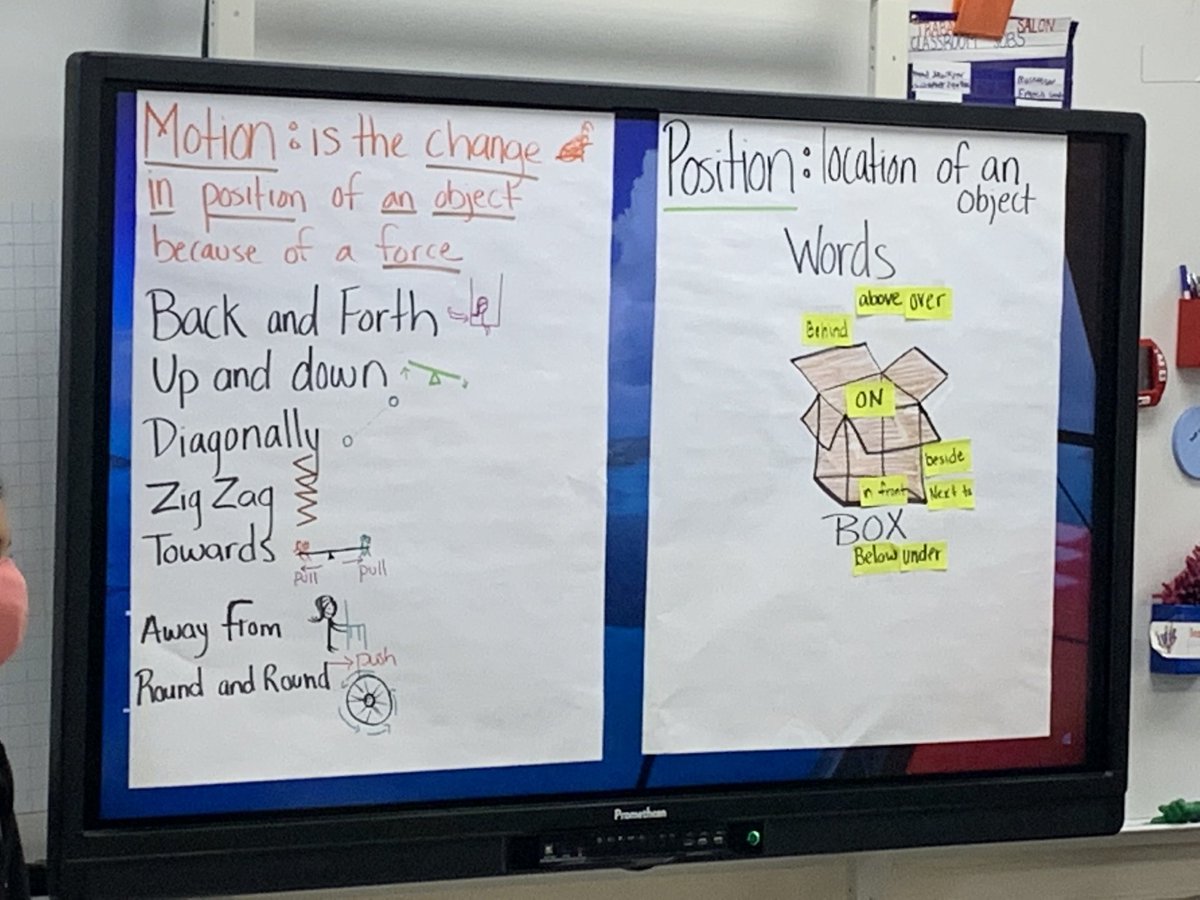 Motion: is the change
in position of an object
because of a force
Back and Forth
Up and down
Diagonally
Zig Zag
Towards
pull pull
Away from
push
Round and Round
Position: location of an
object
Words
above over
Behind
ON
beside
in front Next to
BOX
Below under
Promethean
SALON
CLASSROOM JOBS